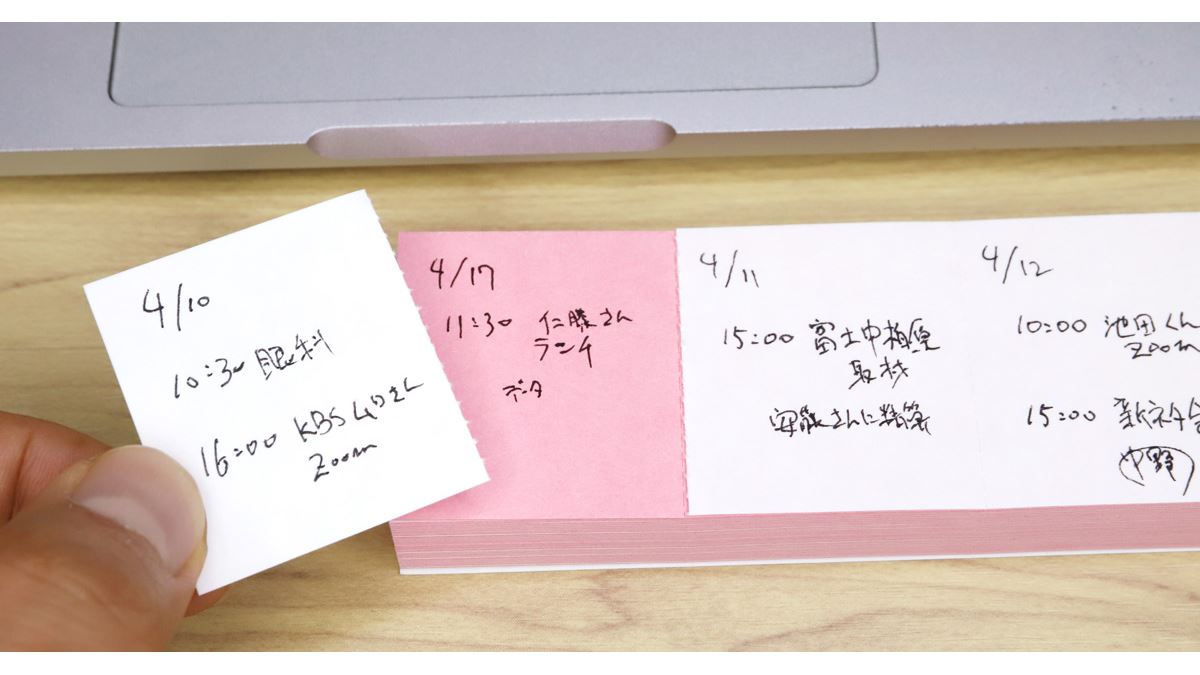 4/10
10:30 眼科
16:00 KBS 山口さん
Zoom
4/17
11:30 仁藤さん
ランチ
データ
4/11
15:00 富士中相原
取材
安藤さんに精算
4/12
10:00 池田くん
Zoom
15:00
中野